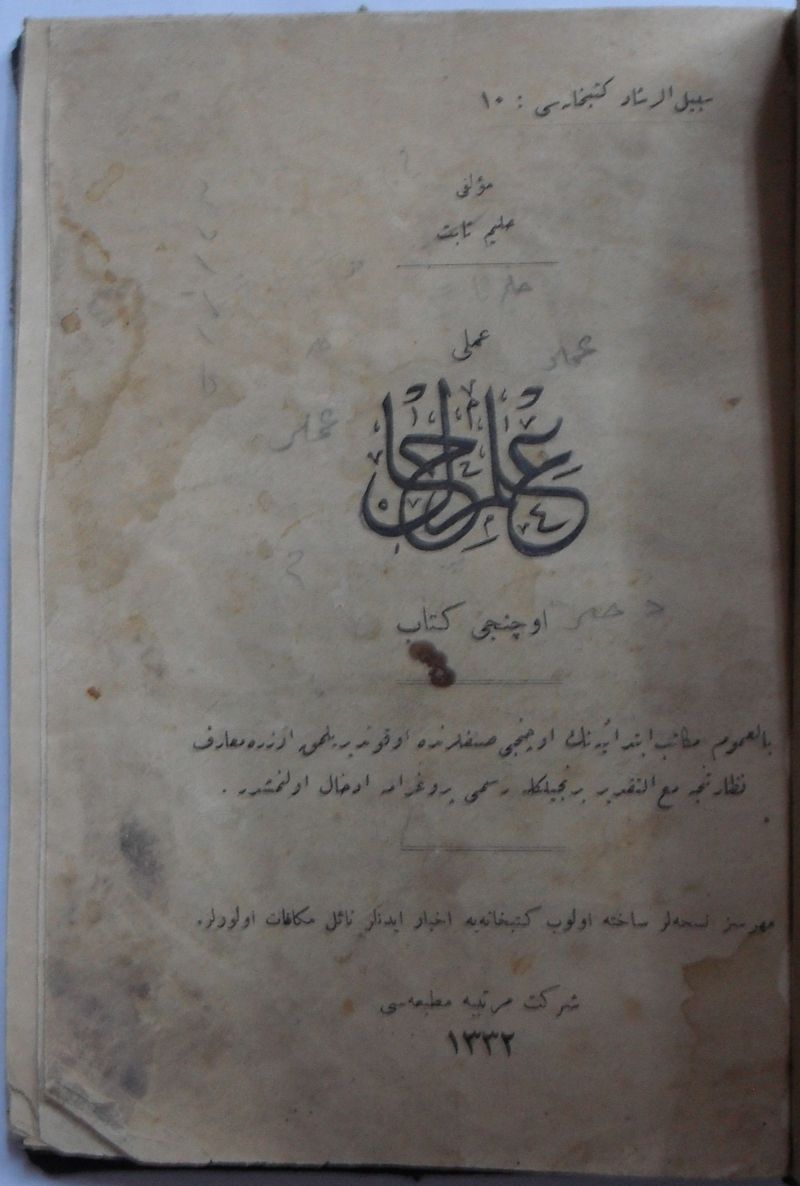 سبيل الرشاد كتبخانه‌سى : ١٠
مؤلفى
حليم ثابت
عملى
علم حال
اوچنجى كتاب
بالعموم مكاتب ابتدائيه‌نك اوچنجى صنفلرنده اوقوتديريلمق اوزره معارف
نظارتنجه مع التقدير برنجيلكله رسمى پروغرامه ادخال اولنمشدر .
مهرسز نسخه‌لر ساخته اولوب كتبخانه‌يه اخبار ايدنلر نائل مكافات اولورلر.
شركت مرتبيه مطبعه‌سى
١٣٣٢